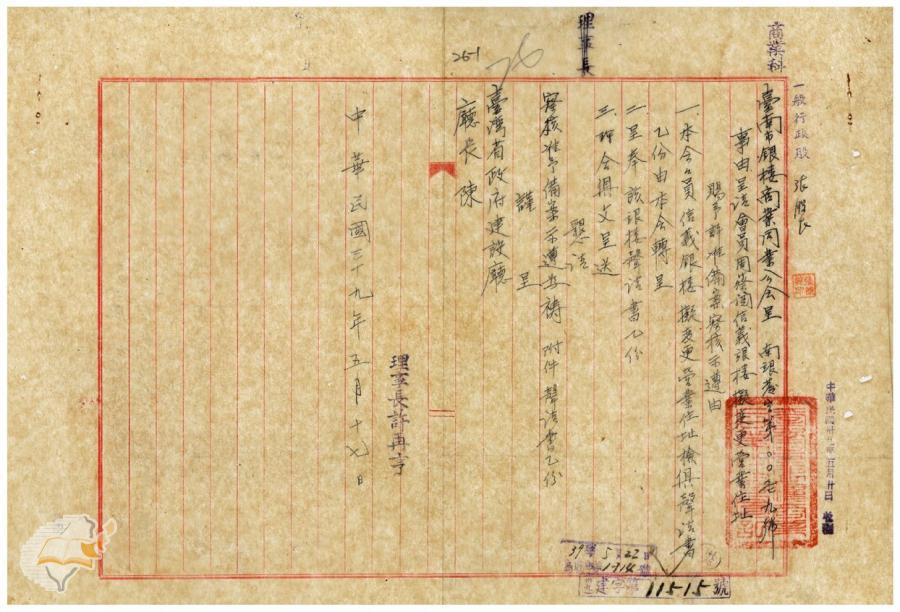 商業科
一般行政股 張股長
臺南市銀樓商業同業公會呈 南銀巷字第〇〇七九號
事由呈請會員周條淘信義銀樓擬變更營業住址
賜予許准備案察核示遵由
一、本會會員信義銀樓擬變更營業住址檢俱聲請書
乙份由本會轉呈
二、呈奉該銀樓聲請書乙份
三、理合俱文呈送
懇請
察核准予備案示遵為禱 附件聲請書乙份
謹呈
臺灣省政府建設廳
廳長 陳
理事長
理事長許再亨
中華民國三十九年五月十七日
26-1
26
中華民國卅九年五月廿日
39 5月22日
1714號
建字第11515號